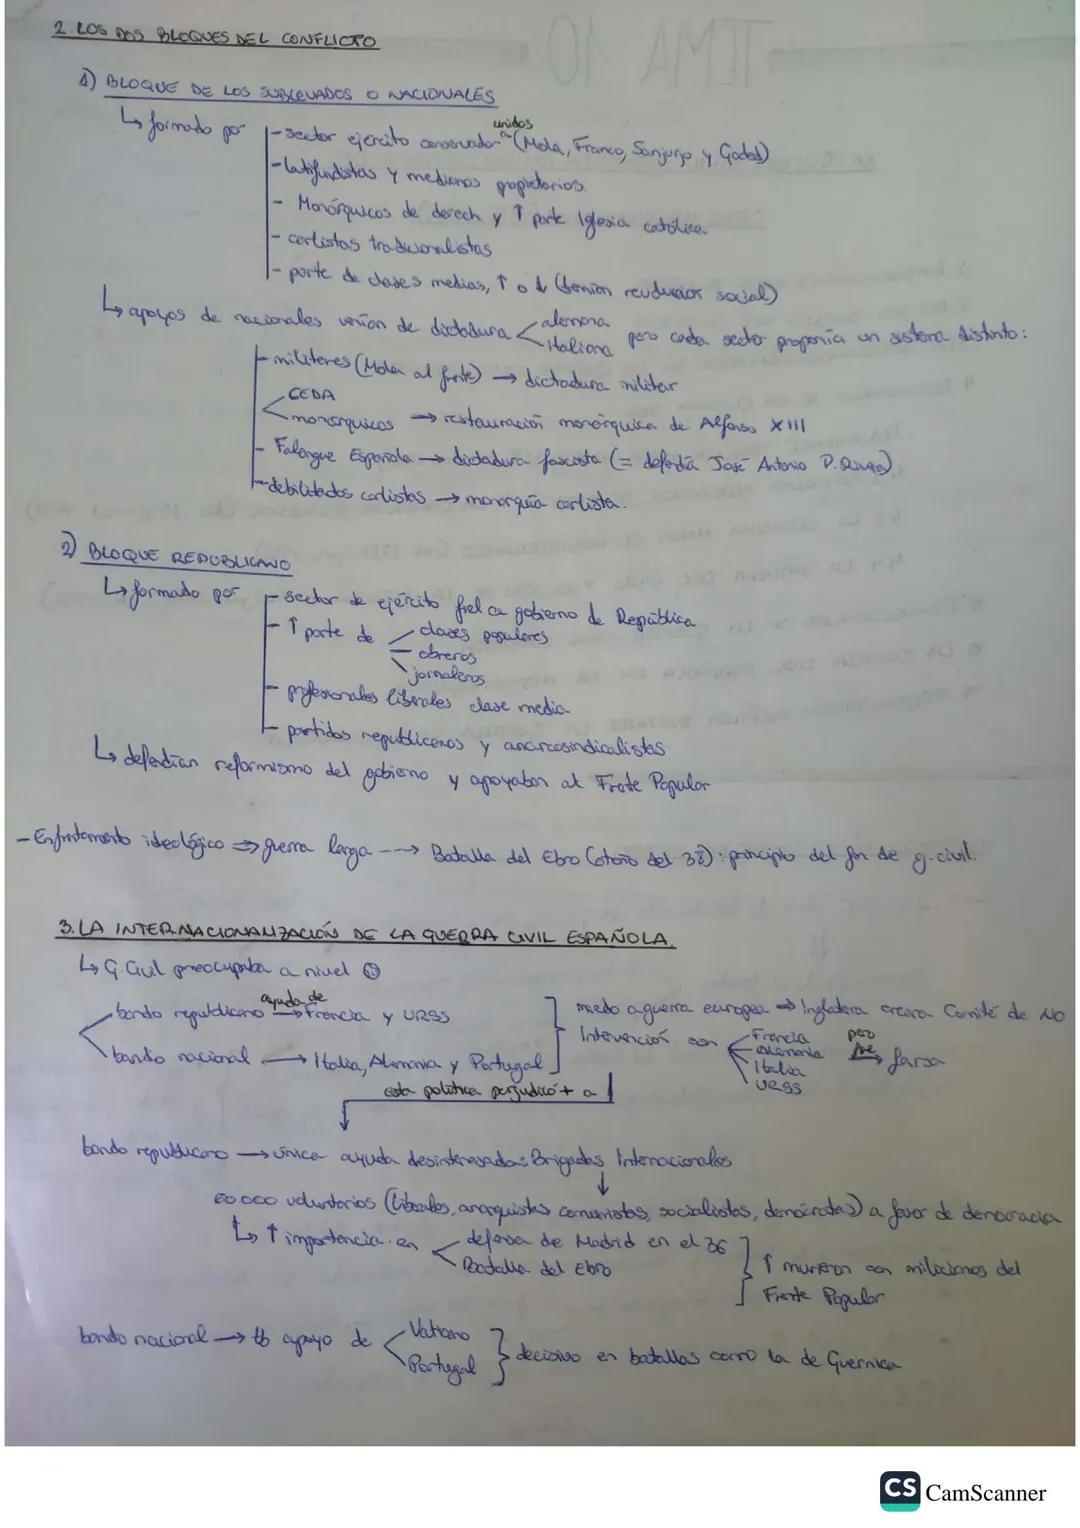 2. LOS DOS BLOQUES DEL CONFLICTO
1) BLOQUE DE LOS SUBLEVADOS O NACIONALES
↳ formado por
- sector ejército conservador unidos a (Mola, Franco, Sanjurjo y Goded)
- latifundistas y medianos propietarios.
- Monárquicos de derech. y ↑ parte Iglesia católica
- carlistas tradicionalistas
- parte de clases medias, ↑ o ↓ (temían revolución social)
↳ apoyos de nacionales venían de dictadura alemana italiana pero cada sector proponía un sistema distinto:
- militares (Mola al frente) → dictadura militar
CEDA
monárquicos → restauración monárquica de Alfonso XIII
- Falange Española → dictadura fascista (= defendía José Antonio P. Rivera)
- debilitados carlistas → monarquía carlista.
2) BLOQUE REPUBLICANO
↳ formado por
- sector de ejército fiel a gobierno de República
- ↑ parte de clases populares
obreros
jornaleros
- profesionales liberales clase media
- partidos republicanos y anarcosindicalistas
↳ defendían reformismo del gobierno y apoyaban al Frente Popular
- Enfrentamiento ideológico ⇒ guerra larga ---> Batalla del Ebro (otoño del 38): principio del fin de g. civil.
3. LA INTERNACIONALIZACIÓN DE LA GUERRA CIVIL ESPAÑOLA.
↳ G. Civil preocupaba a nivel
bando republicano ayuda de → Francia y URSS
bando nacional → Italia, Alemania y Portugal
miedo a guerra europea ⇒ Inglaterra creara Comité de NO
Intervención con Francia
Alemania
Italia
URSS
pero fue → farsa
esta política perjudicó + a
bando republicano → única ayuda desinteresada: Brigadas Internacionales
60 000 voluntarios (liberales, anarquistas, comunistas, socialistas, demócratas) a favor de democracia
↳ ↑ importancia en defensa de Madrid en el 36
Batalla del Ebro
↑ murieron con milicianos del
Frente Popular
bando nacional → tb apoyo de Vaticano
Portugal
decisivo en batallas como la de Guernica
CS CamScanner